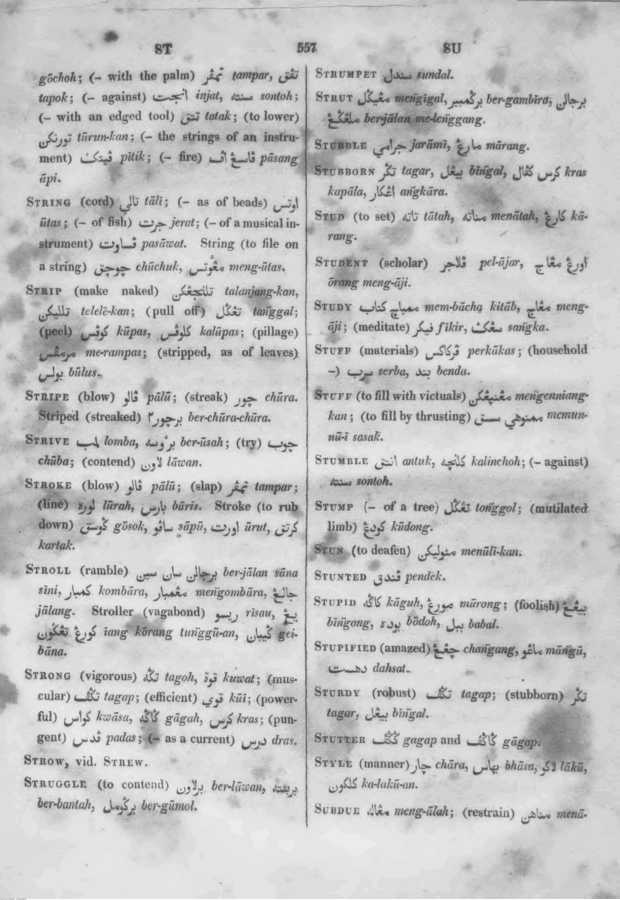 ST 557 SU
gōchoh; (– with the palm) تمڤر tampar, تڤق
tapok; (– against) انجت injat, سنته sontoh;
(– with an edged tool) تتق tatak; (to lower)
تورنكن tūrun-kan; (– the strings of an instru-
ment) ڤيتك pītik; (– fire) ڤاسڠ اڤي pāsang
āpi.
STRING (cord) تالي tāli; (– as of beads) اوتس
ūtas; (– of fish) جرت jerat; (– of a musical in-
strument) ڤساوت pasāwat. String (to file on
a string) چوچق chūchuk, مڠوتس meng-ūtas.
STRIP (make naked) تلنجڠكن talanjang-kan,
تلليكن telelē-kan; (pull off) تڠݢل tanggal;
(peel) كوڤس kūpas, كلوڤس kalūpas; (pillage)
مرمڤس me-rampas; (stripped, as of leaves)
بولس būlus.
STRIPE (blow) ڤالو pālū; (streak) چور chūra.
Striped (streaked) برچور٢ ber-chūra-chūra.
STRIVE لمب lomba, برٴوسه ber-ūsah; (try) چوب
chūba; (contend) لاون lāwan.
STROKE (blow) ڤالو pālū; (slap) تمڤر tampar;
(line) لوره lūrah, بارس bāris. Stroke (to rub
down) ݢوسق gōsok, ساڤو sāpū, اورت ūrut, كرتق
kartak.
STROLL (ramble) برجالن سان سين ber-jālan sāna
sīni, كمبار kombāra, مڠمبار mengombāra, جالڠ
jālang. Stroller (vagabond) ريسو rīsau, يڠ
كورڠ تڠݢون iang kōrang tunggū-an, ݢيبان gei-
bāna.
STRONG (vigorous) تݢه tagoh, قوة kuwat; (mus-
cular) تݢڤ tagap; (efficient) قوي kūi; (power-
ful) كواس kwāsa, ݢاݢه gāgah, كرس kras; (pun-
gent) ڤدس padas; (– as a current) درس dras.
STROW, vid. STREW.
STRUGGLE (to contend) برلاون ber-lāwan, بربنته
ber-bantah, برݢومل ber-gūmol.
STRUMPET سندل sundal.
STRUT مڠيݢل mengīgal, برݢمبير ber-gambīra, برجالن
ملڠݢڠ berjālan me-lenggang.
STUBBLE جرامي jarāmī, مارڠ mārang.
STUBBORN تݢر tagar, بيڠل bīngal, كرس كڤال kras
kapāla, اڠكار angkāra.
STUD (to set) تاته tātah, مناته menātah, كارڠ kā-
rang.
STUDENT (scholar) ڤلاجر pel-ājar, اورڠ مڠاج
ōrang meng-āji.
STUDY ممباچ كتاب mem-bācha kitāb, مڠاج meng-
āji; (meditate) فيكر fikir, سڠك sangka.
STUFF (materials) ڤركاكس perkākas; (household
–) سرب serba, بند benda.
STUFF (to fill with victuals) مڠنيڠكن mengenniang-
kan; (to fill by thrusting) ممنوهي سسق memun-
nū-i sasak.
STUMBLE انتق antuk, كلنچه kalinchoh; (– against)
سنته sontoh.
STUMP (– of a tree) تڠݢل tonggol; (mutilated
limb) كودڠ kūdong.
STUN (to deafen) منوليكن menūli-kan.
STUNTED ڤندق pendek.
STUPID كاݢه kāguh, مورڠ mūrong; (foolish) بيڠڠ
bīngong, بوده bōdoh, ببل babal.
STUPIFIED (amazed) چڠڠ changang, ماڠو māngū,
دهست dahsat.
STURDY (robust) تݢڤ tagap; (stubborn) تݢر
tagar, بيڠل bīngal.
STUTTER ݢݢڤ gagap and ݢاݢڤ gāgap.
STYLE (manner) چار chāra, بهاس bhāsa, لاكو lākū,
كلكون ka-lakū-an.
SUBDUE مڠاله meng-ālah; (restrain) مناهن menā-